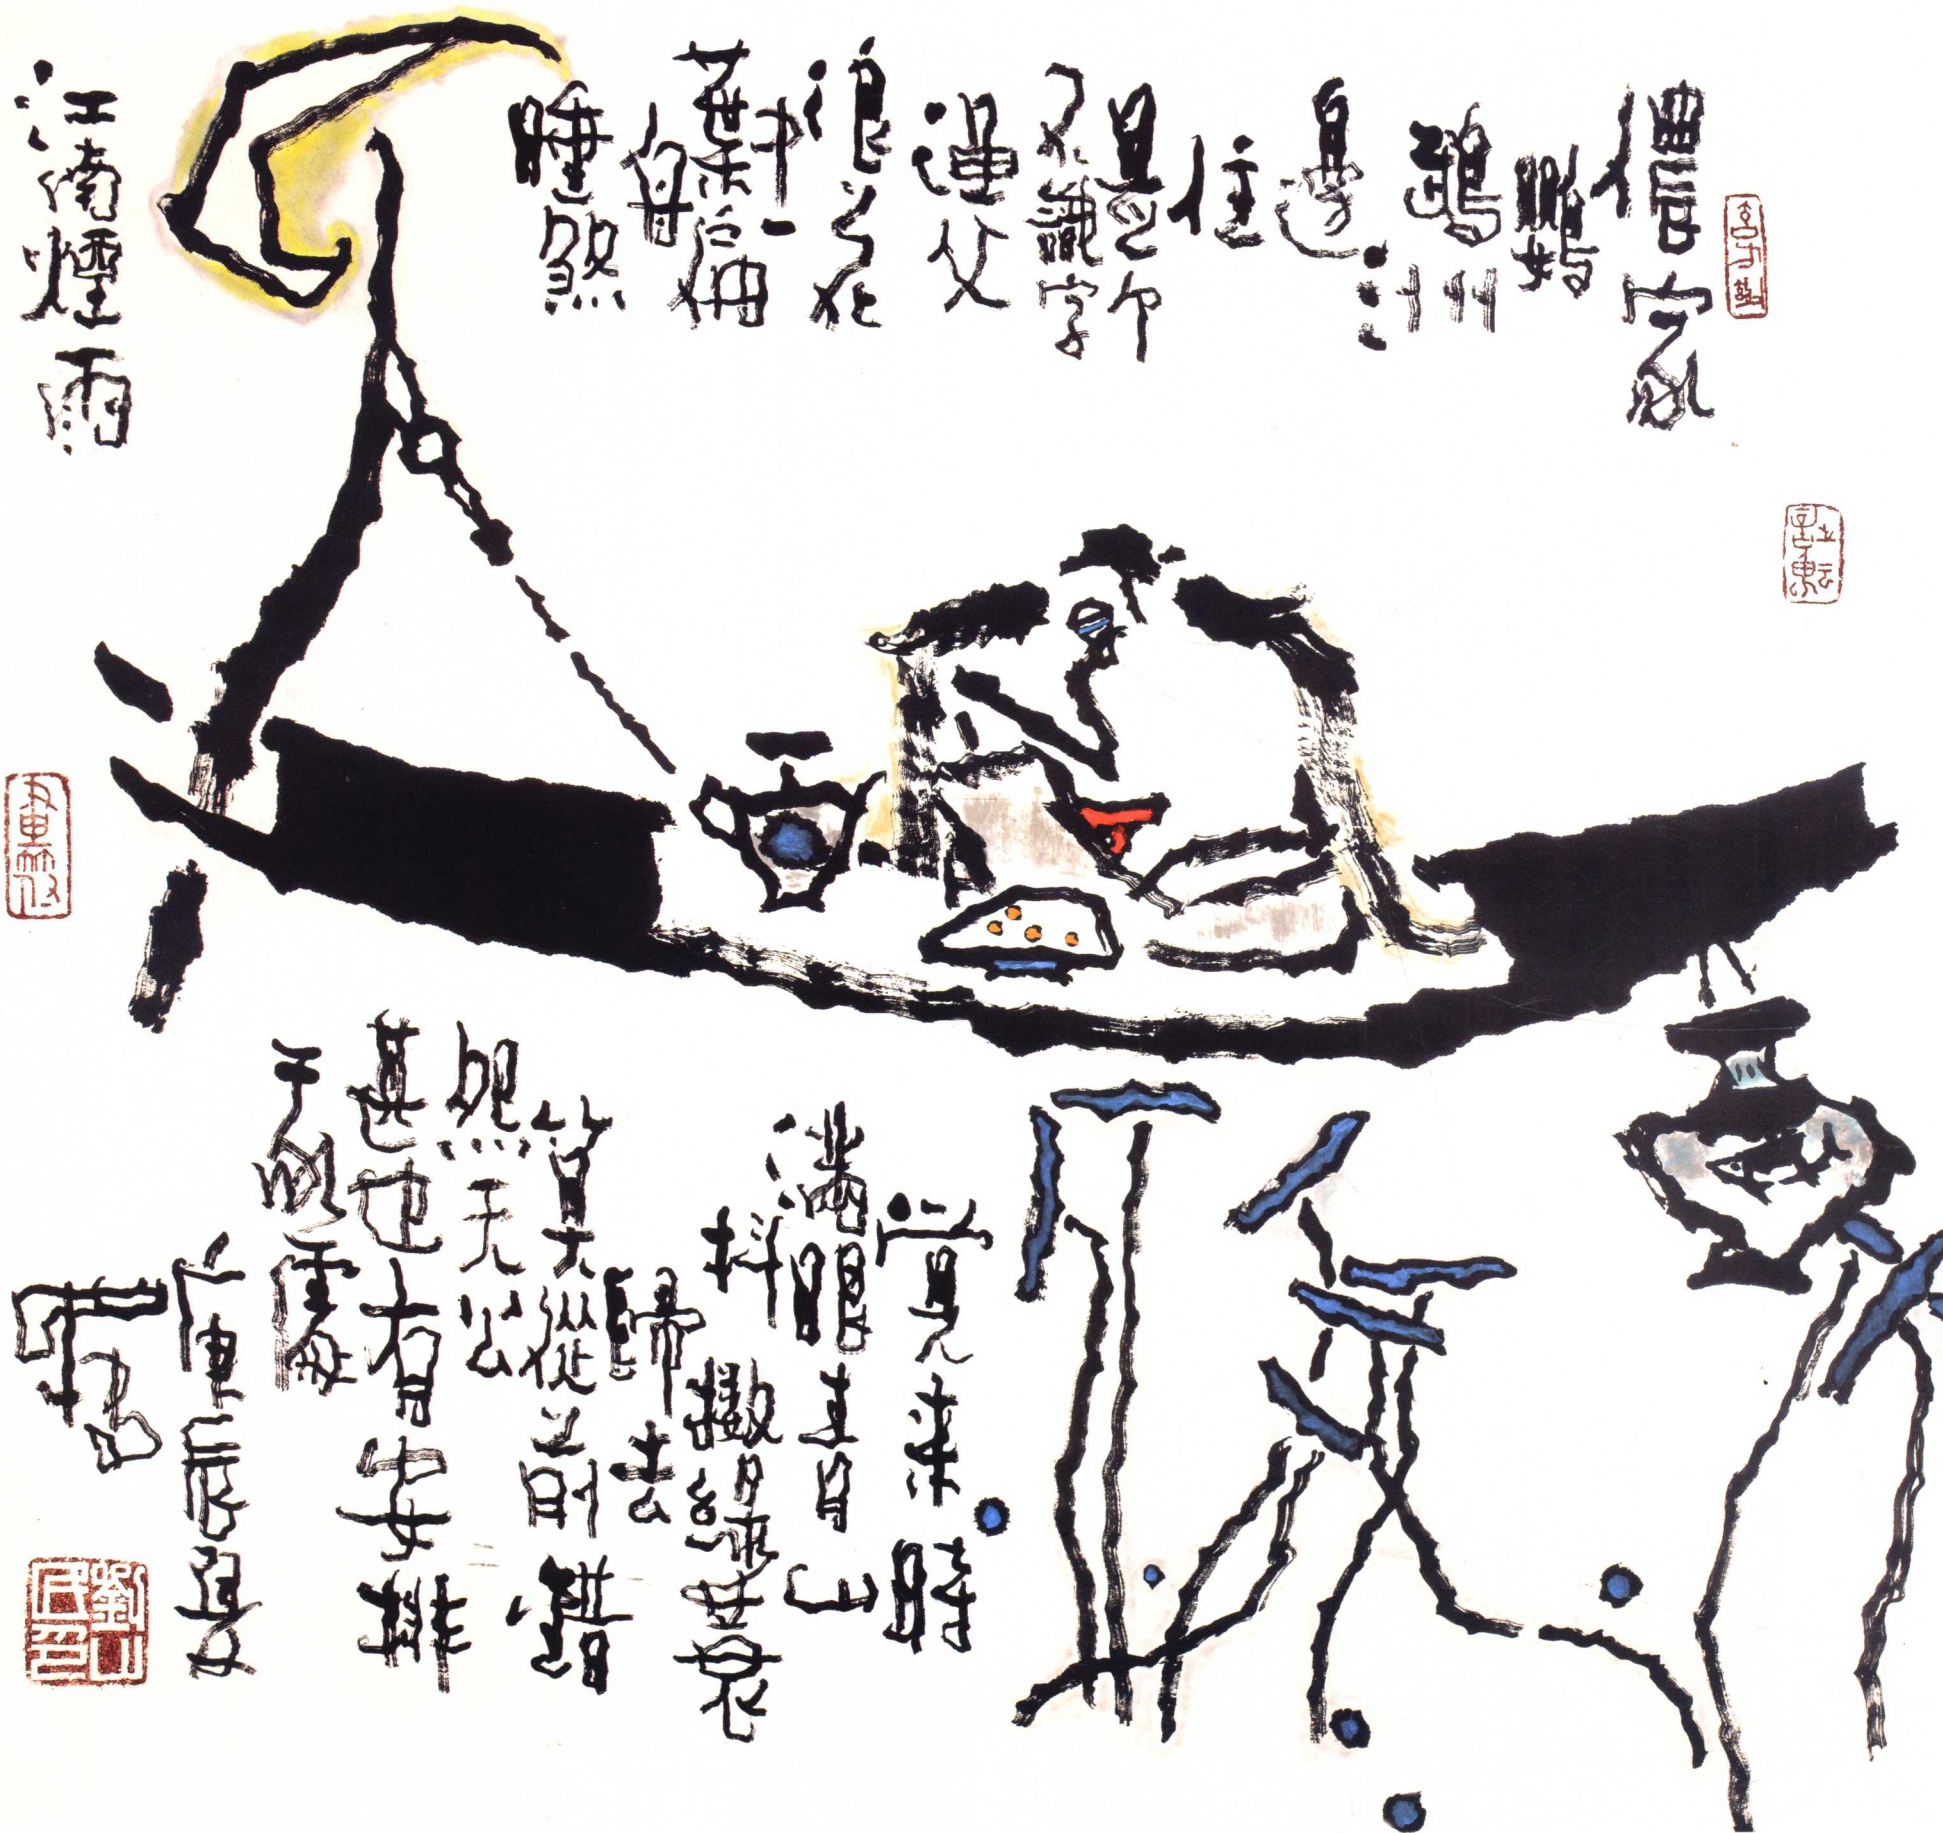 儂家
鸚
鵡洲
邊
住
是个
不識字
漁父
浪花
中一
葉扁
舟
睡煞
江南煙雨
覚来時
滿眼青山
抖擻綠蓑
歸去
算從前錯
怨天公
甚也有安排
于我處
庚辰夏